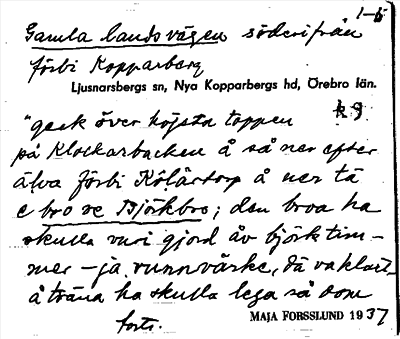 1-5
Gamla landsvägen söderifrån
förbi Kopparberg
Ljusnarsbergs sn, Nya Kopparbergs hd, Örebro län.
"geck över höjsta toppen
på Klockarbacken å så ner efter
älva förbi Kölärtorp å ner tä
e bro ve Björkbro; den broa ha
skulla vari gjord åv björktim-
mer - ja runnvärke, dä va klart,
å träna ha skulla lega så som
forts.
MAJA FORSSLUND 1937